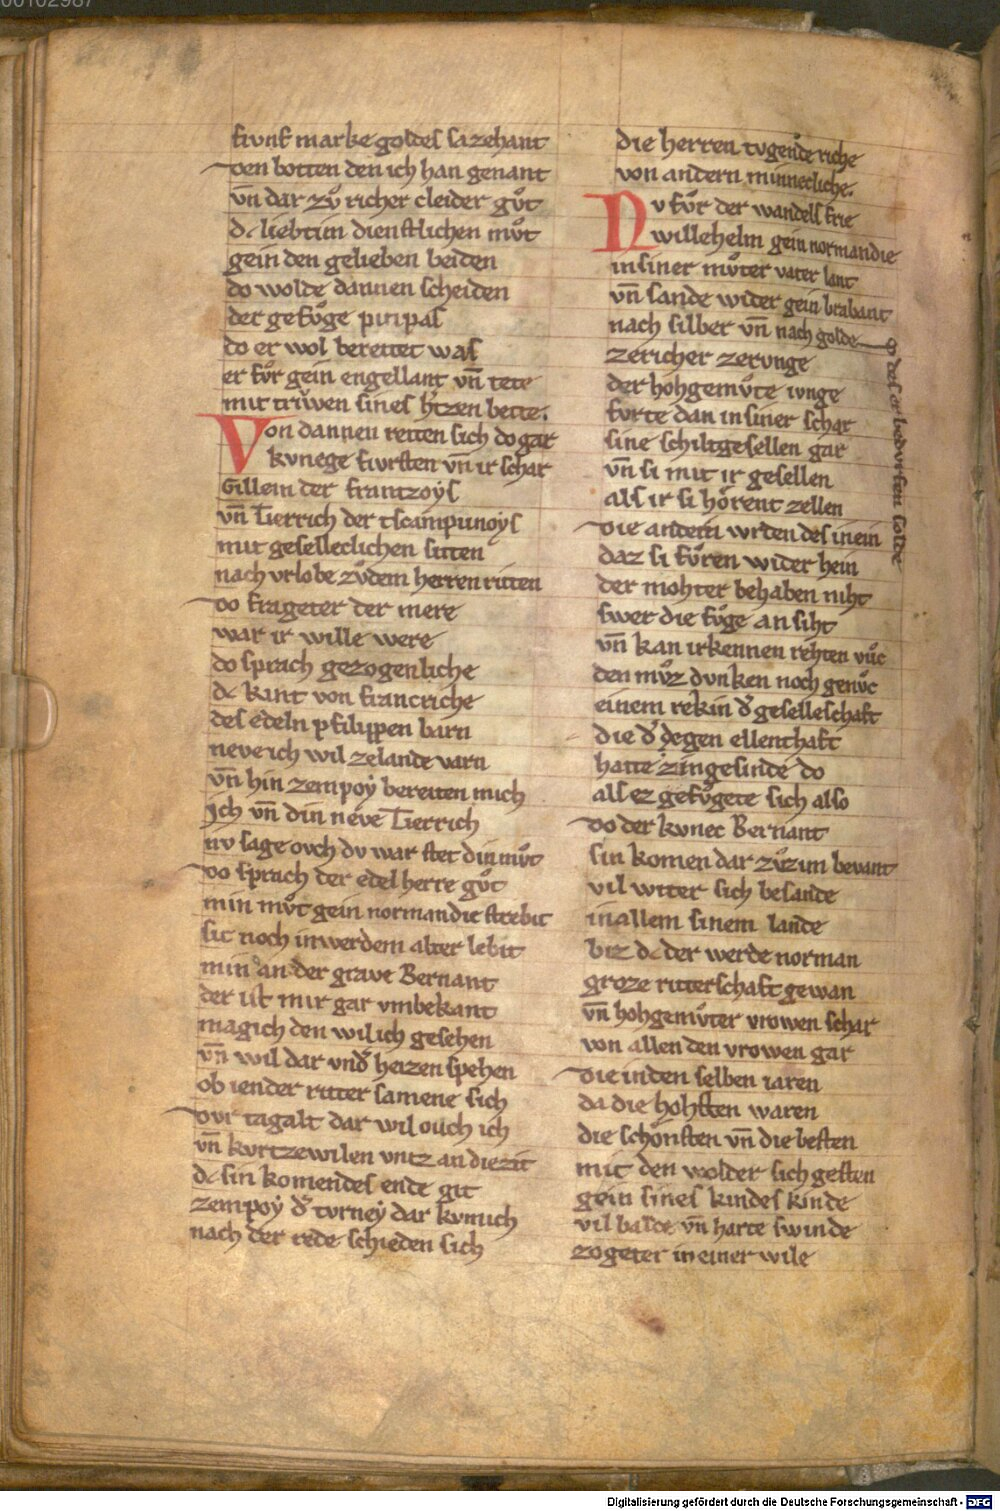 00102987
fivnf marke goldes sazehant
den botten den ich han genant
vn̄ dar zuͦ richer cleider guͦt
dc liebt im dienstlichen muͦt
gein den gelieben beiden
do wolde dannen scheiden
der gefuͦge piripas
do er wol bereitet was
er fuͦr gein engellant vn̄ tete
mit triwen sines h̄tzen bette.
Von dannen reiten sich do gar
kvnege fivrsten vn̄ ir schar
Gillem der frantzoys
vn̄ Tierrich der tscampunoys
mit geselleclichen sitten
nach vrlobe zuͦ dem herren ritten
do frageter der mere
war ir wille were
do sprach gezogenliche
dc kint von francriche
des edeln pfilippen barn
neve ich wil ze lande varn
vn̄ hin zempoy bereiten mich
Ich vn̄ din neve Tierrich
nv sage ovch dv war stet din muͦt
do sprach der edel herre guͦt
min muͦt gein normandie strebit
sit noch in werdem alter lebit
min an der grave Bernant
der ist mir gar vnbekant
mag ich den wil ich gesehen
vn̄ wil dar vnd̕ heizen spehen
ob iender ritter samene sich
dvr tagalt dar wil ouch ich
vn̄ kvrtzewilen vntz an die zit
dc sin komendes ende git
zempoy d̕ tvrney dar kvm ich
nach der rede schieden sich
die herren tvgende riche
von andern minnecliche.
Nv fuͦr der wandels frie
willehelm gein normandie
in siner muͦter vater lant
vn̄ sande wider gein brabant
nach silber vn̄ nach golde
des er bedvrfen solde
ze richer zervnge
der hohgemuͦte ivnge
fvrte dan in siner schar
sine schiltgesellen gar
vn̄ si mit ir gesellen
als ir si hörent zellen
die andern wrden des inein
daz si fuͦren wider hein
der mohter behaben niht
swer die fuͦge an siht
vn̄ kan irkennen rehten vuͦc
den muͦz dvnken noch genuͦc
einem rekin d̕ geselleschaft
die d̕ degen ellenthaft
hatte zingesinde do
als ez gefuͦgete sich also
do der kvnec Bernant
sin komen dar zuͦ zim bevant
vil witer sich besande
in allem sinem lande
biz dc der werde norman
groze ritterschaft gewan
vn̄ hohgemuͦter vrowen schar
von allen den vrowen gar
die in den selben iaren
da die hohsten waren
die schönsten vn̄ die besten
mit den wolder sich gesten
gein sines kindes kinde
vil balde vn̄ harte swinde
zogeter in einer wile
Digitalisierung gefördert durch die Deutsche Forschungsgemeinschaft - DFG